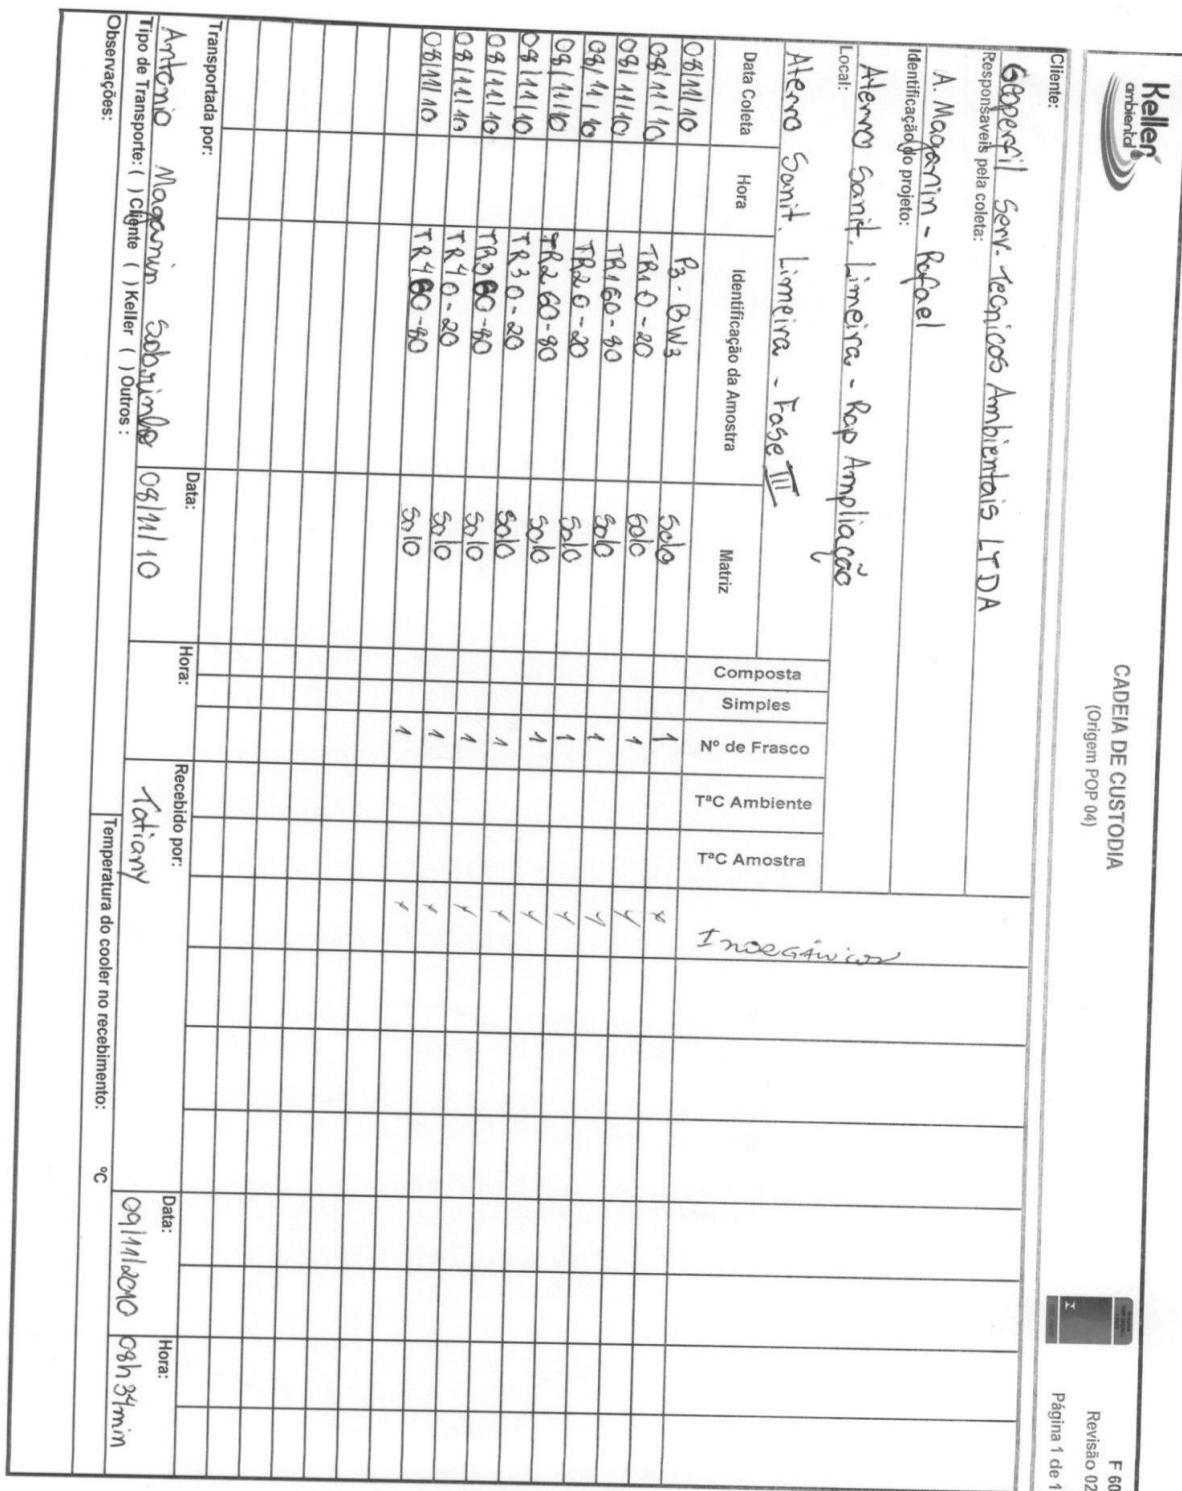 Keller
ambiental
CADEIA DE CUSTODIA
(Origem POP 04)
F 60
Revisão 02
Página 1 de 1
Cliente:
Geoperfil Serv. Tecnicos Ambientais LTDA
Responsaveis pela coleta:
A. Maganin - Rafael
Identificação do projeto:
Aterro Sanit. Limeira - Rap Ampliação
Local:
Aterro Sanit. Limeira - Fase III
Data Coleta Hora Identificação da Amostra Matriz Composta Simples Nº de Frasco TªC Ambiente TªC Amostra Inorgânicos
08/11/10 P3-BW3 Solo 1 x
08/11/10 TR1 0-20 Solo 1 x
08/11/10 TR1 60-80 Solo 1 x
08/11/10 TR2 0-20 Solo 1 x
08/11/10 TR2 60-80 Solo 1 x
08/11/10 TR3 0-20 Solo 1 x
08/11/10 TR3 60-80 Solo 1 x
08/11/10 TR4 0-20 Solo 1 x
08/11/10 TR4 60-80 Solo 1 x
Transportada por: Data: Hora: Recebido por: Data: Hora:
Antonio Maganin Sobrinho 08/11/10 Tatiany 09/11/2010 08h34min
Tipo de Transporte: ( ) Cliente ( ) Keller ( ) Outros :
Observações: Temperatura do cooler no recebimento: ºC